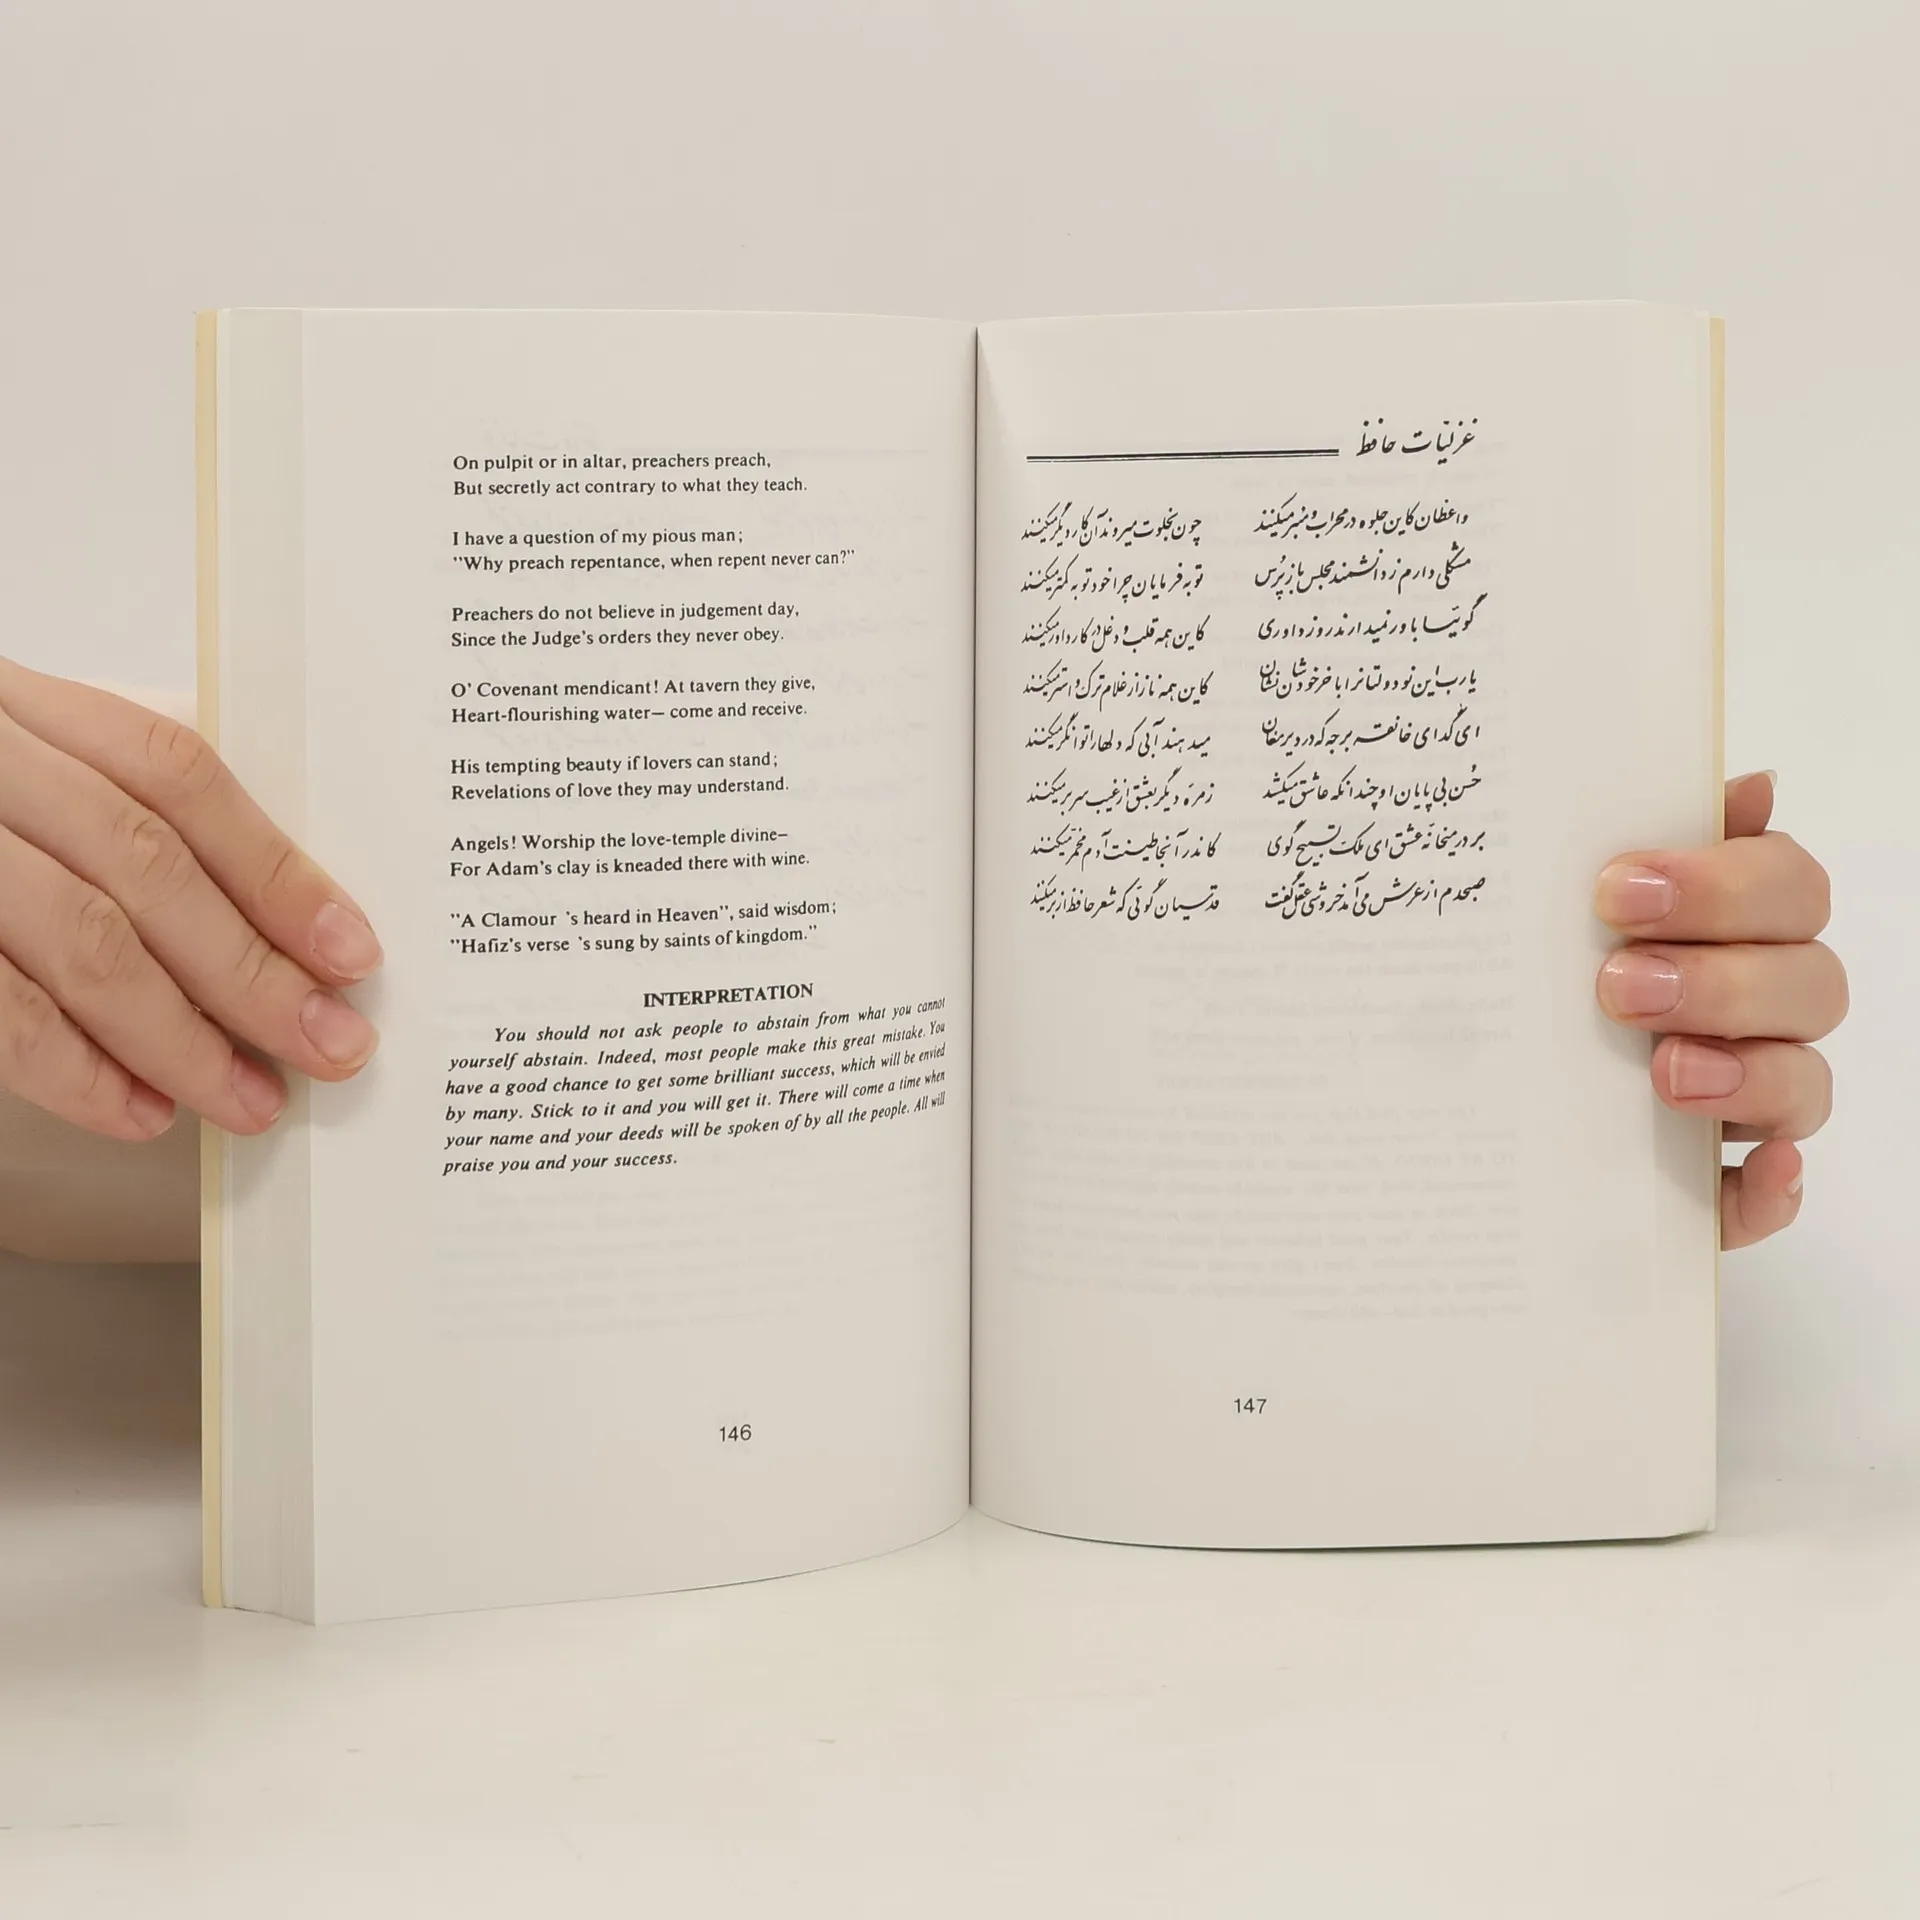 On pulpit or in altar, preachers preach,
But secretly act contrary to what they teach.
I have a question of my pious man;
"Why preach repentance, when repent never can?"
Preachers do not believe in judgement day,
Since the Judge's orders they never obey.
O' Covenant mendicant! At tavern they give,
Heart-flourishing water— come and receive.
His tempting beauty if lovers can stand;
Revelations of love they may understand.
Angels! Worship the love-temple divine—
For Adam's clay is kneaded there with wine.
"A Clamour 's heard in Heaven", said wisdom;
"Hafiz's verse 's sung by saints of kingdom."
INTERPRETATION
You should not ask people to abstain from what you cannot
yourself abstain. Indeed, most people make this great mistake. You
have a good chance to get some brilliant success, which will be envied
by many. Stick to it and you will get it. There will come a time when
your name and your deeds will be spoken of by all the people. All will
praise you and your success.
146
غزلیّات حافظ
واعظان کاین جلوه در محراب و منبر میکنند چون بخلوت میروند آن کار دیگر میکنند
مشکلی دارم ز دانشمند مجلس باز پُرس توبه فرمایان چرا خود توبه کمتر میکنند
گوئیا باور نمیدارند روز داوری کاین همه قلب و دغل در کار داور میکنند
یارب این نودولتانرا با خر خودشان نشان کاین همه ناز از غلام ترک و استر میکنند
ای گدای خانقه برجه که در دیر مغان میدهند آبی که دلها را توانگر میکنند
حُسن بی پایان او چندانکه عاشق میکشد زمره دیگر بعشق از غیب سر بر میکنند
بر در میخانهٔ عشق ای ملک تسبیح گوی کاندر آنجا طینت آدم مخمّر میکنند
صبحدم از عرش می آمد خروشی عقل گفت قدسیان گوئی که شعر حافظ از بر میکنند
147